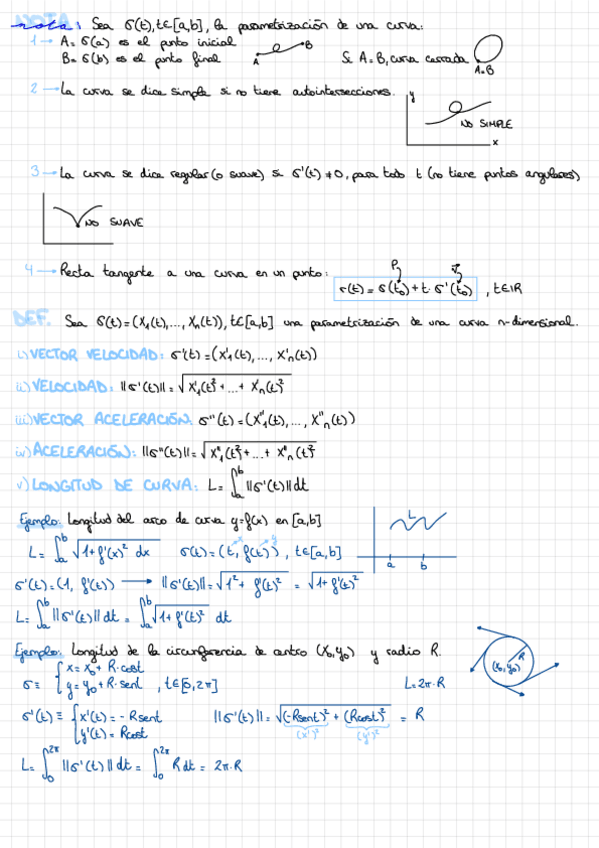 nota: Sea σ(t), t∈[a,b], la parametrización de una curva:
1 → A = σ(a) es el punto inicial
B = σ(b) es el punto final
A B
Si A=B, curva cerrada
A=B
2 → La curva se dice simple si no tiene autointersecciones.
y
NO SIMPLE
x
3 → La curva se dice regular (o suave) si σ'(t) ≠ 0, para todo t (no tiene puntos angulares)
NO SUAVE
4 → Recta tangente a una curva en un punto:
r(t) = σ(t₀) + t · σ'(t₀), t∈ℝ
DEF. Sea σ(t) = (x₁(t), ..., xₙ(t)), t∈[a,b] una parametrización de una curva n-dimensional.
i) VECTOR VELOCIDAD: σ'(t) = (x'₁(t), ..., x'ₙ(t))
ii) VELOCIDAD: ||σ'(t)|| = √(x'₁(t)² + ... + x'ₙ(t)²)
iii) VECTOR ACELERACIÓN: σ''(t) = (x''₁(t), ..., x''ₙ(t))
iv) ACELERACIÓN: ||σ''(t)|| = √(x''₁(t)² + ... + x''ₙ(t)²)
v) LONGITUD DE CURVA: L = ∫ₐᵇ ||σ'(t)|| dt
Ejemplo: Longitud del arco de curva y=f(x) en [a,b]
L
a b
L = ∫ₐᵇ √(1+f'(x)²) dx σ(t) = (t, f(t)), t∈[a,b]
x y
σ'(t) = (1, f'(t)) → ||σ'(t)|| = √(1² + f'(t)²) = √(1+f'(t)²)
L = ∫ₐᵇ ||σ'(t)|| dt = ∫ₐᵇ √(1+f'(t)²) dt
Ejemplo: Longitud de la circunferencia de centro (x₀,y₀) y radio R.
R
(x₀,y₀)
σ ≡ { x = x₀ + R·cost
y = y₀ + R·sent, t∈[0,2π]
L = 2π·R
σ'(t) ≡ { x'(t) = -Rsent
y'(t) = Rcost
||σ'(t)|| = √((-Rsent)² + (Rcost)²) = R
(x')² (y')²
L = ∫₀²π ||σ'(t)|| dt = ∫₀²π R dt = 2π·R